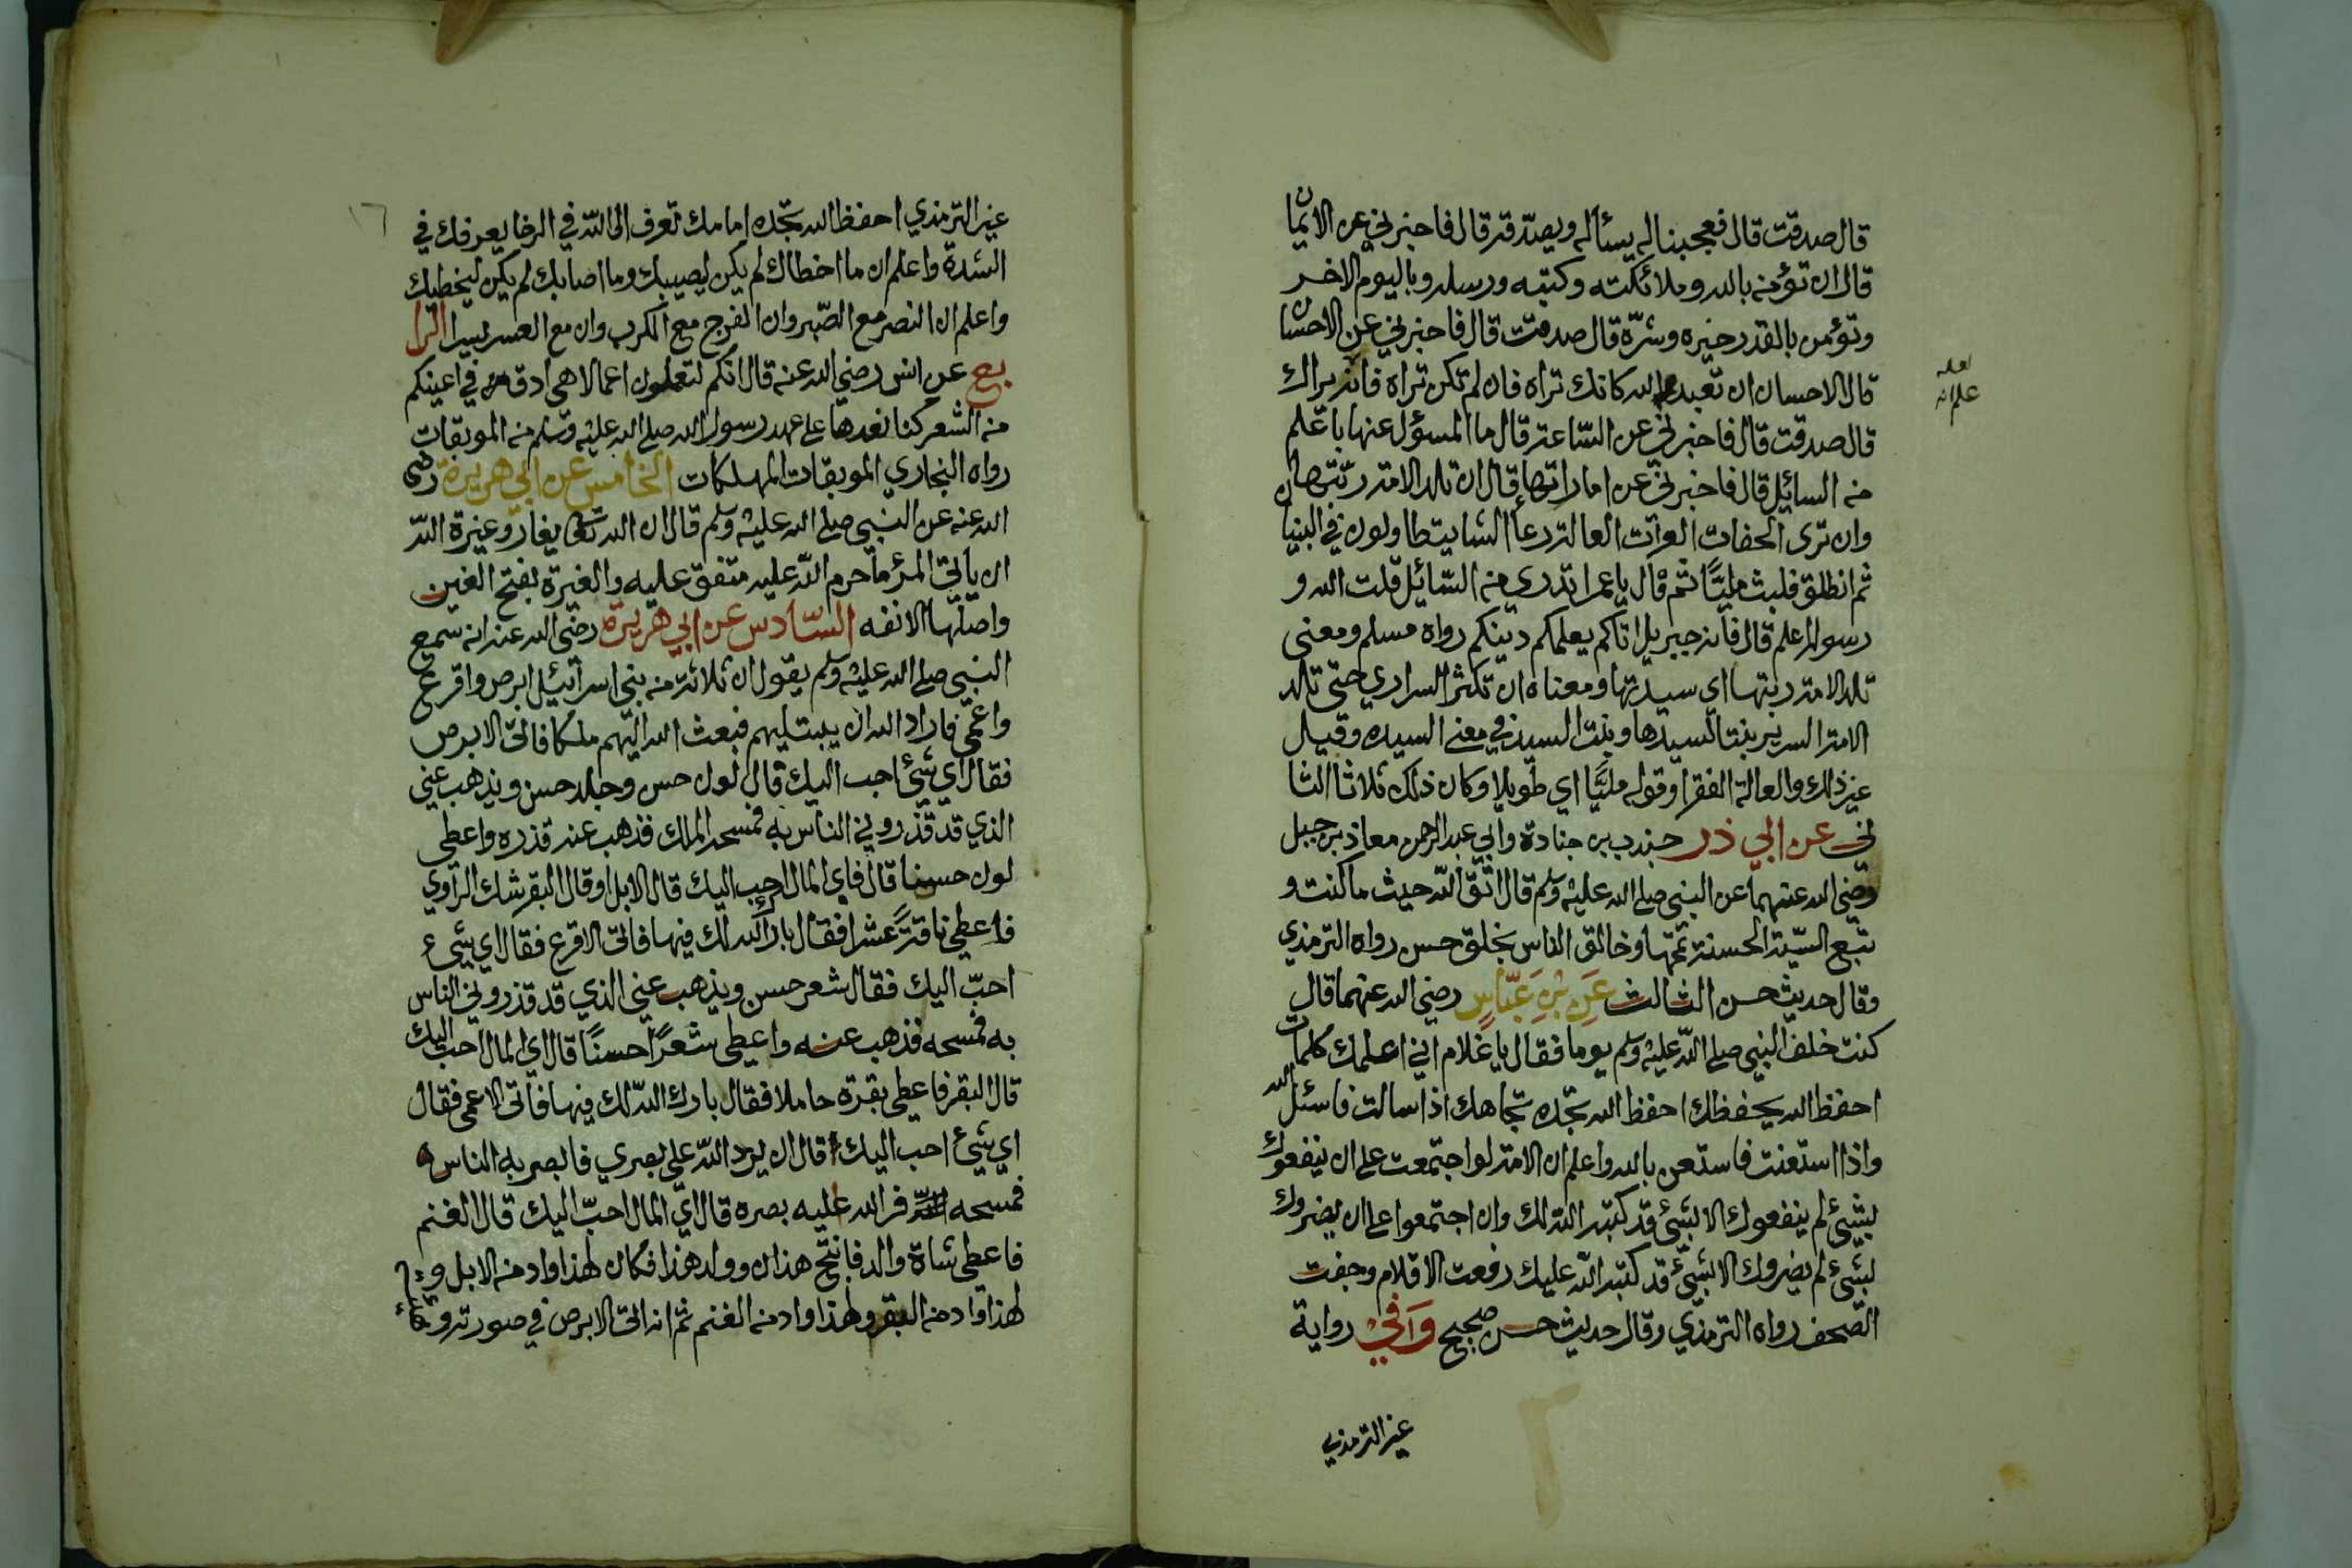 قال صدقت قال فعجبنا له يسأله ويصدقه قال فاخبرني عن الايمان
قال ان تؤمنه بالله وملائكته وكتبه ورسله وباليوم الاخر
وتؤمن بالقدر خيره وشرّه قال صدقت قال فاخبرني عن الاحسان
قال الاحسان ان تعبد الله كانك تراه فان لم تكن تراه فانه يراك
قال صدقت قال فاخبرني عن السّاعة قال ما المسؤل عنها باعلم
منه السائيل قال فاخبرني عن اماراتها قال ان تلد الامة ربّتها
وان ترى الحفات العرات العالة رعا الشا يتطاولون في البنيان
ثم انطلق فلبث مليّا ثم قال يا عمر اتدري منه السّائيل قلت الله و
رسوله اعلم قال فانه جبريل اتاكم يعلمكم دينكم رواه مسلم ومعنى
تلد الامة ربتها اي سيدتها ومعناه ان تكثر السراري حتى تلد
الامة السرية بنتا لسيدها وبنت السيد في معنى السيده وقيل
غير ذلك والعالة الفقرا وقوله مليّا اي طويلا وكان ذلك ثلاثا الثا
ني عن ابي ذر جندب بن جنادة وابي عبد الرحمن معاذ بن جبل
رضي الله عنهما عن النبي صلى الله عليه وسلم قال اتّق اللّه حيث ما كنت و
تبع السيّئة الحسنة تمحها وخالق الناس بخلق حسن رواه الترمذي
وقال حديث حسن الثالث عَنِ بْنِ عَبّاسٍ رضي الله عنهما قال
كنت خلف النبي صلى اللّه عليه وسلم يوما فقال يا غلام اني اعلمك كلمات
احفظ الله يحفظك احفظ الله تجده تجاهك اذا سالت فاسئل الله
واذا استعنت فاستعن بالله واعلم ان الامة لو اجتمعت على ان ينفعوك
بشيئ لم ينفعوك الا بشيئ قد كتبه اللّه لك وان اجتمعوا على ان يضروك
بشيئ لم يضروك الا بشيئ قد كتبه اللّه عليك رفعت الاقلام وجفت
الصّحف رواه الترمذي وقال حديث حسن صحيح وَفي رواية
غير الترمذي
لعله
علم انه
١٦
غير الترمذي احفظ الله تجده امامك تعرف الى اللّه في الرخا يعرفك في
الشدة واعلم ان ما اخطاك لم يكن ليصيبك وما اصابك لم يكن ليخطيك
واعلم ان النصر مع الصّبر وان الفرج مع الكرب وان مع العسر يسيرا الرا
بع عن انس رضي الله عنه قال انكم لتعملون اعمالا هي ادق في اعينكم
منه الشعر كنا نعدها على عهد رسول الله صلى الله عليه وسلم منه الموبقات
رواه البخاري الموبقات المهلكات الخامس عن ابي هريرة رضي
الله عنه عن النبي صلى الله عليه وسلم قال ان الله تعالى يغار وغيرة اللّه
ان ياتي المرؤ ما حرم اللّه عليه متفق عليه والغيرة بفتح الغين
واصلها الانفه السّادس عن ابي هريرة رضي الله عنه انه سمع
النبي صلى الله عليه وسلم يقول ان ثلاثة منه بني اسرائيل ابرص واقرع
واعمى فاراد الله ان يبتليهم فبعث الله اليهم ملكا فاتى الابرص
فقال اي شيئ احب اليك قال لون حسن وجلد حسن ويذهب عني
الذي قد قذروني الناس به فمسحه الملك فذهب عنه قذره واعطى
لون حسنا قال فاي المال احب اليك قال الابل او قال البقر شك الراوي
فاعطي ناقة عشرا فقال بارك الله لك فيها فاتى الاقرع فقال اي شيئ
احبّ اليك فقال شعر حسن ويذهب عني الذي قد قذروني الناس
به فمسحه فذهب عنه واعطى شعرًا حسنًا قال اي المال احب اليك
قال البقر فاعطى بقرة حاملا فقال بارك اللّه لك فيها فاتى الاعمى فقال
اي شيئ احب اليك قال ان يرد اللّه علي بصري فابصر به الناس
فمسحه فرد الله عليه بصره قال اي المال احبّ اليك قال الغنم
فاعطى شاة والد فانتج هذان وولد هذا فكان لهذا واد منه الابل و
لهذا واد منه البقر ولهذا واد منه الغنم ثم انه اتى الابرص في صورته و